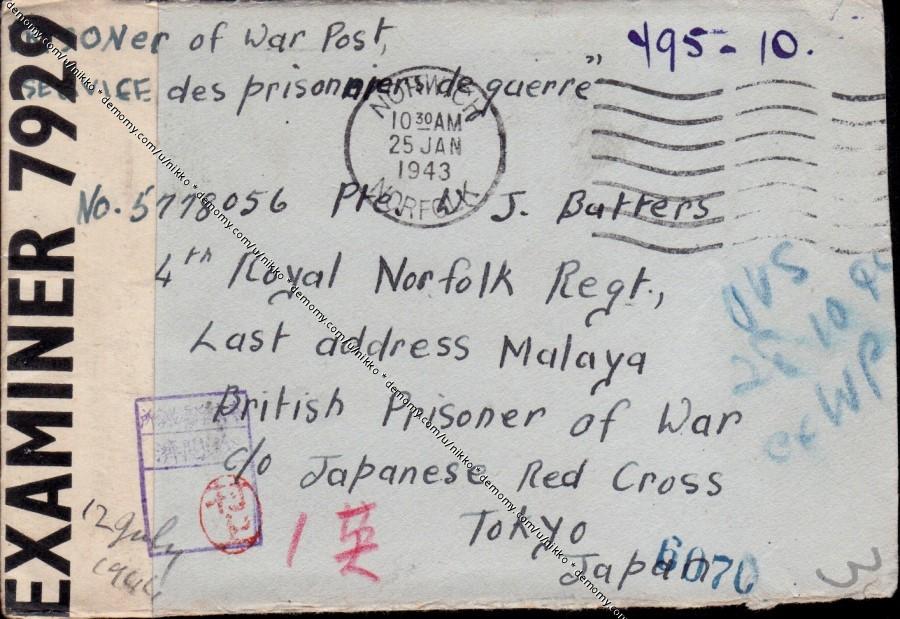 Prisoner of War Post,
SERVICE des prisonniers de guerre"
495-10.
NORWICH
10 30 AM
25 JAN
1943
NORFOLK
No. 5778056 Pte. W. J. Butters
4th Royal Norfolk Regt.,
Last address Malaya
British Prisoner of War
c/o Japanese Red Cross
Tokyo
Japan
EXAMINER 7929
1英
6070
12 July
1944
3
demomy.com/u/nikko * demomy.com/u/nikko * demomy.com/u/nikko